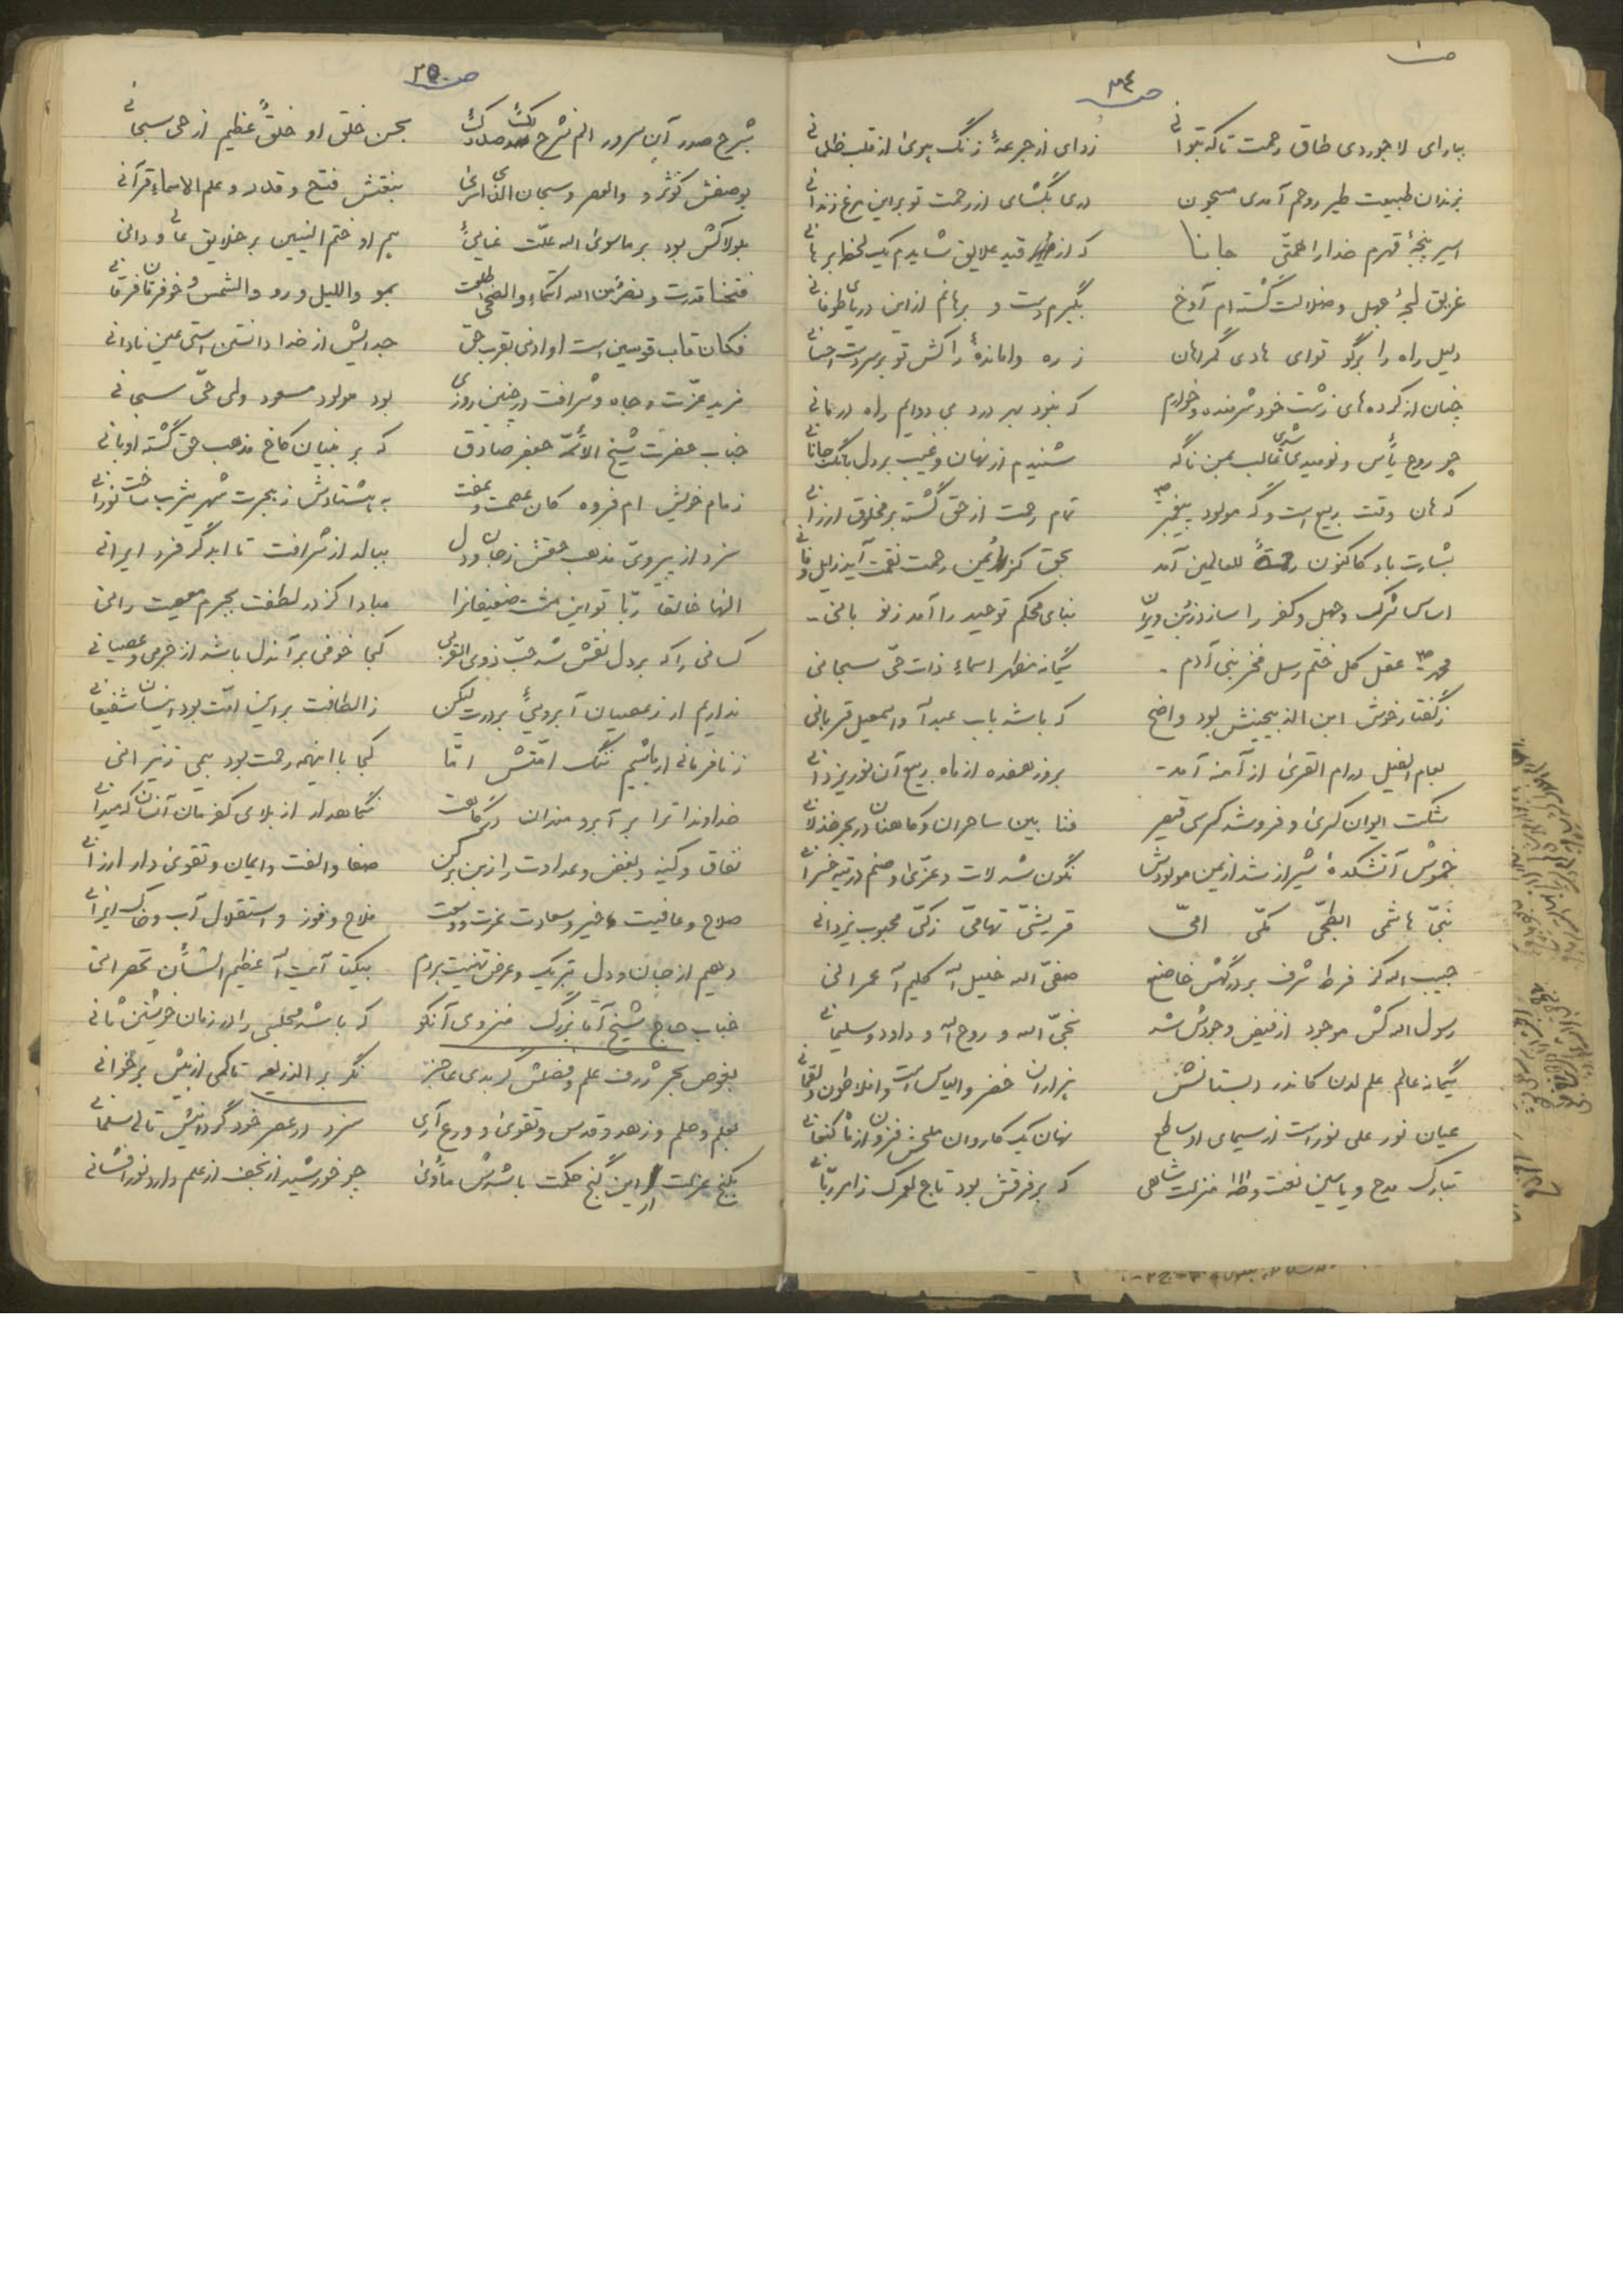 ص ۳۴
بیارای لاجوردی طاق رحمت تا که بتوانی زدای از جرعهٔ زنگ هوی از قلب ظلمانی
بزندان طبیعت طیر روحم آمدی مسجون دری بگشای از رحمت تو بر این مرغ زندانی
اسیر پنجهٔ قهرم خدا را همتی جانا که از قید علایق شایدم یک لحظه برهانی
غریق لجهٔ جهل و ضلالت گشته ام آوخ بگیرم دست و برهانم از این دریای طوفانی
دلیل راه را برگو توای هادی گمراهان ز ره واماندهٔ را کش تو بر سر دست احسانی
چنان از کرده های زشت خود شرمنده و خوارم که نبود بهر درد بی دوایم راه درمانی
چو روح یأس و نومیدی شدی غالب بمن ناگه شنیدم از نهان و غیب بر دل بانگ جانانی
که هان وقت ربیع است و گه مولود پیغمبر تمام رحمت از حق گشته بر مخلوق ارزانی
بشارت باد کاکنون رحمةً للعالمین آمد بحق کز یمن رحمت نقمت آید زایل و فانی
اساس شرک و جهل و کفر را سازد ز بن ویران بنای محکم توحید را آمد ز نو بانی
محمد ص عقل کل ختم رسل فخر بنی آدم یگانه مظهر اسماء ذات حی سبحانی
ز گفتار خوش ابن الذبیحینش بود واضح که باشد باب عبدالله و اسمعیل قربانی
بعام الفیل در ام القری از آمنه آمد بروز هفده از ماه ربیع آن نور یزدانی
شکست ایوان کسری و فرو شد کرسی قیصر فنا بین ساحران و کاهنان در بحر خذلانی
خموش آتشکدهٔ شیراز شد از یمن مولودش نگون شد لات و عزی و صنم در تیه خسرانی
نبی هاشمی ابطحی مکی امی قریشی تهامی زکی محبوب یزدانی
حبیب الله کز فرط شرف بر درگهش خاضع صفی الله خلیل الله کلیم الله عمرانی
رسول الله کش موجود از فیض وجودش شد نجی الله و روح الله و داود و سلیمانی
یگانه عالم علم لدن کاندر دبستانش هزاران خضر و الیاس است و افلاطون و لقمانی
عیان نور علی نور است از سیمای او ساطع نهان یک کاروان ملحش فزون از ماه کنعانی
تبارک مدح و یاسین نعت و طه منزلت شاهی که بر فرقش بود تاج لعمرک ز امر ربانی
ص ۳۵
بشرح صدر آن سرور الم نشرح لک صدرک بحسن خلق او خلقٍ عظیم از حی سبحانی
بوصفش کوثر و والعصر و سبحان الذی اسری بنقش فتح و قدر و علم الاسماء قرآنی
بلولاکش بود بر ماسوی الله علت غایی هم او ختم النبیین بر خلایق عالی و دانی
فتحنا قدرت و نصر من الله اسماء والضحی طلعت بمو واللیل و رو والشمس و خو فرقان فرقانی
فکان قاب قوسین است او ادنی بقرب حق جدایش از خدا دانستن استی عین نادانی
مزید عزت و جاه و شرافت در چنین روزی بود مولود مسعود ولی حی سبحانی
جناب حضرت شیخ الائمه جعفر صادق که بر بنیان کاخ مذهب حق گشته او بانی
ز مام خویش ام فروه کان عصمت و عفت به هشتادش ز هجرت شهر یثرب ساخت نورانی
سزد از پیروی مذهب حقش ز جان و دل ببالد از شرافت تا ابد گر فرد ایرانی
الها خالقا ربا تو این مشت ضعیفانرا مبادا کز در لطفت بجرم معصیت رانی
کسانی را که بر دل نقش شد حب ذوی القربی کجا خوفی بر آندل باشد از جرمی و عصیانی
نداریم از ز عصیان آبرویی بر درت لیکن ز الطافت بر این امت بود اینسان شفیعانی
ز نافرمانی ار باشیم ننگ امتش اما کجا با اینهمه رحمت بود بیمی ز نیرانی
خداوندا ترا بر آبرومندان درگاهت نگاهدار از بلای کفرمان آنسان که میدانی
نفاق و کینه و بغض و عداوت را ز بن برکن صفا و الفت و ایمان و تقوی دار ارزانی
صلاح و عافیت خیر و سعادت عزت و وسعت فلاح و فوز و استقلال آب و خاک ایرانی
دهیم از جان و دل تبریک و عرض تهنیت بر دم بیکتا آیت الله عظیم الشأن تهرانی
جناب حاج شیخ آقا بزرگ منزوی آنکو که باشد مجلسی را در زمان خویشتن ثانی
بغوص بحر ژرف علم و فضلش گر بدی عاجز نگر بر الذریعه تا کمی از بیش برخوانی
بعلم و حلم و زهد و قدس و تقوی و ورع آری سزد در عصر خود گر دانیش تالی سلمانی
بکنج عزلت ار این گنج حکمت باشدش مأوی چو خورشید از نجف از علم دارد نور افشانی